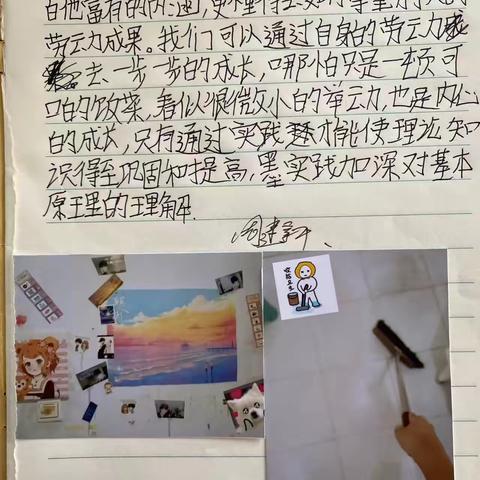 白他富有的内涵,更懂得
劳动力成果。我们可以通过自身的劳动力
去一步一步的成长,哪怕只是一顿可
口的饭菜,看似很微小的举动力,也是内心
的成长,只有通过实践才能使理论知
识得到巩固和提高,实践加深对基本
原理的理解.